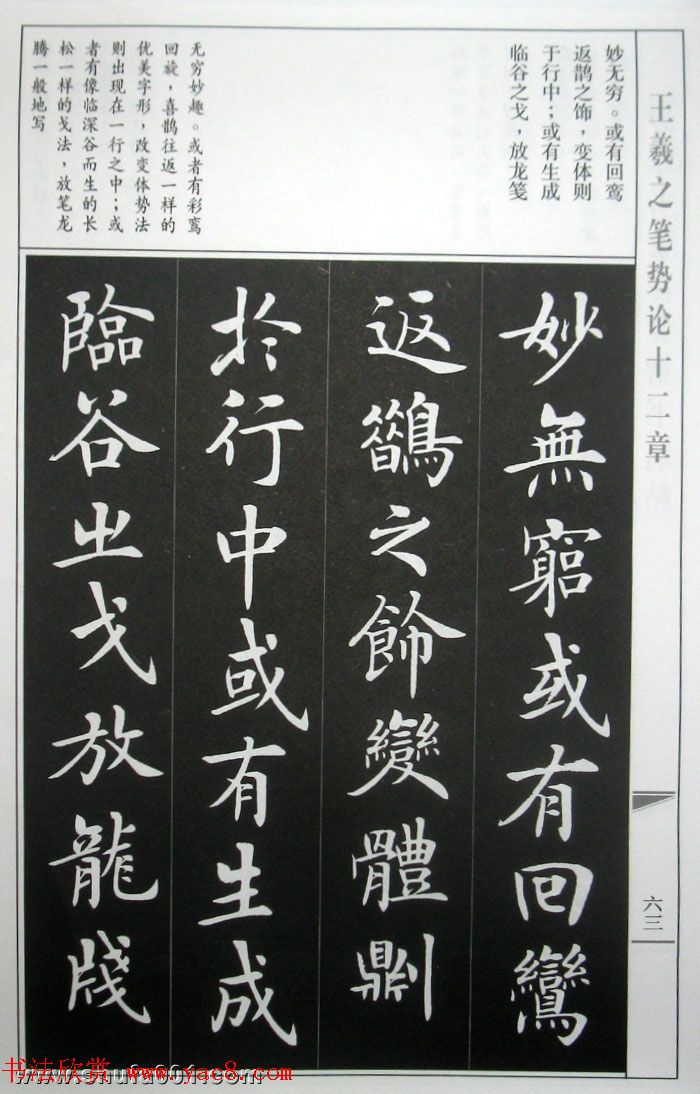 王羲之笔势论十二章
六三
妙无穷。或有回鸾
返鹊之饰，变体则
于行中；或有生成
临谷之戈，放龙笺
无穷妙趣。或者有彩鸾
回旋，喜鹊往返一样的
优美字形，改变体势法
则出现在一行之中；或
者有像临深谷而生的长
松一样的戈法，放笔龙
腾一般地写
妙無窮或有回鸞
返鵲之飾變體則
於行中或有生成
臨谷之戈放龍牋
书法欣赏 www.yac8.com